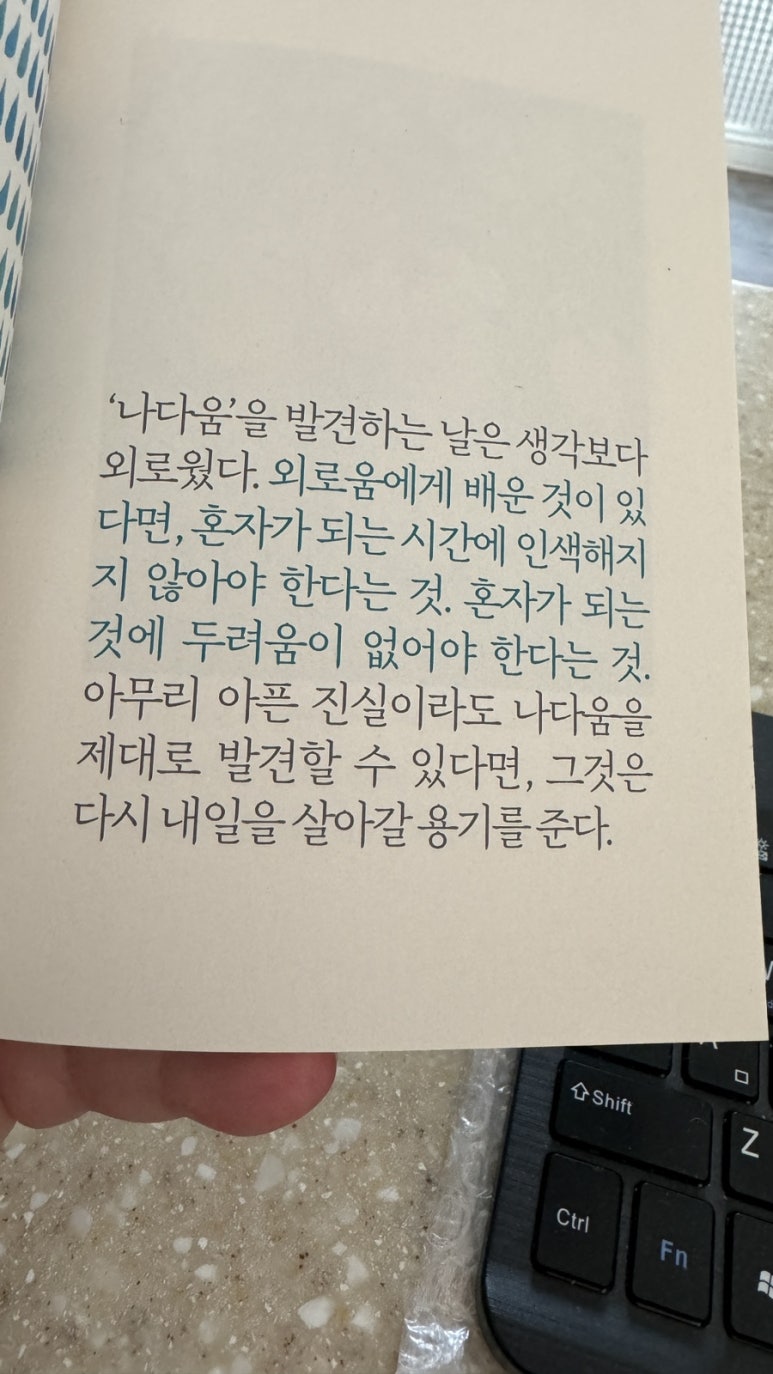 ‘나다움’을 발견하는 날은 생각보다
외로웠다. 외로움에게 배운 것이 있
다면, 혼자가 되는 시간에 인색해지
지 않아야 한다는 것. 혼자가 되는
것에 두려움이 없어야 한다는 것.
아무리 아픈 진실이라도 나다움을
제대로 발견할 수 있다면, 그것은
다시 내일을 살아갈 용기를 준다.
Shift
Z
Ctrl
Fn